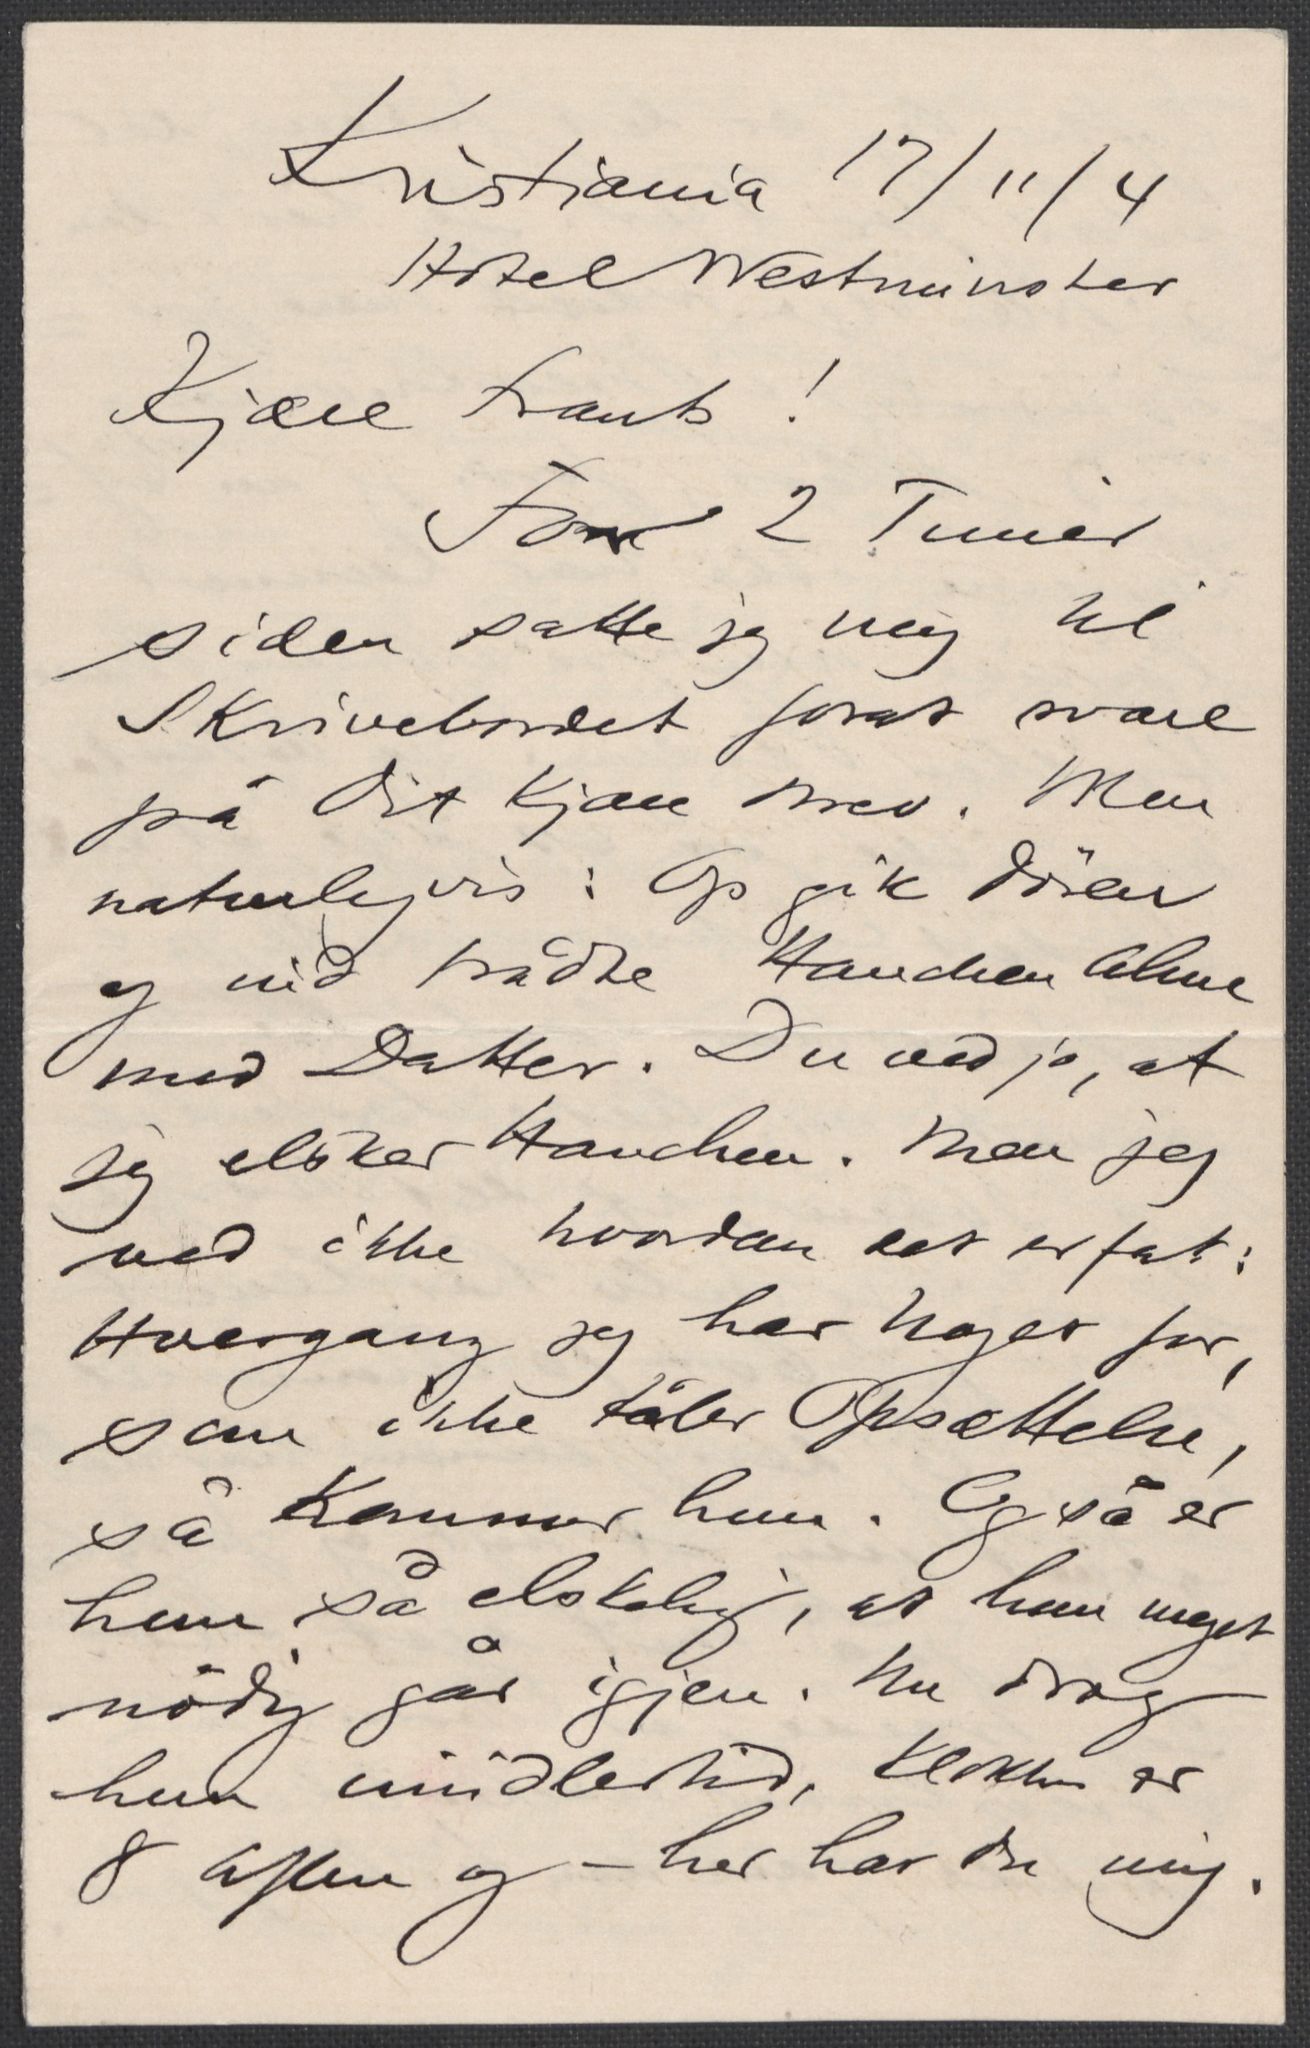 Kristiania 17/11/4
Hotel Westminster
Kjære Frants!
For 2 Timer
siden satte jeg mig til
Skrivebordet forat svare
på dit kjære Brev. Men
naturligvis: Op gik Døren
og ind trådte Hanchen Alme
med Datter. Du ved jo, at
jeg elsker Hanchen. Men jeg
ved ikke hvordan det er fat:
Hvergang jeg har Noget for,
som ikke tåler Opsættelse,
så kommer hun. Og så er
hun så elskelig, at hun meget
nödig går igjen. Nu drog
hun imidlertid, Klokken er
8 Aften og – her har du mig.